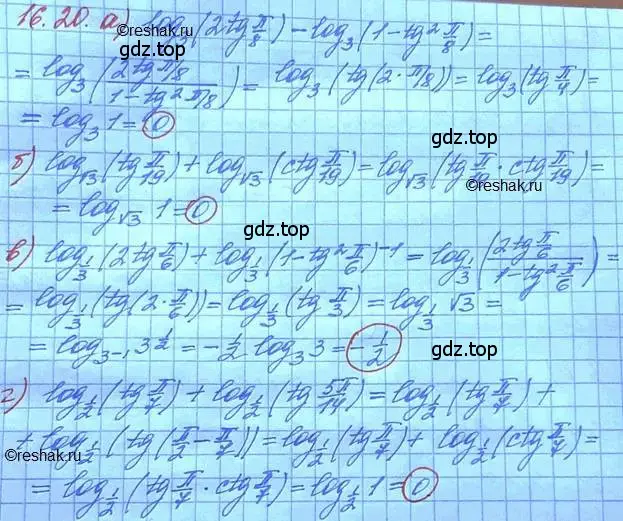 16.20. а) log₃(2tg π/8) − log₃(1 − tg² π/8) =
= log₃(2tg π/8 / 1 − tg² π/8) = log₃(tg(2 · π/8)) = log₃(tg π/4) =
= log₃ 1 = 0
gdz.top
б) log_√3(tg π/19) + log_√3(ctg π/19) = log_√3(tg π/19 · ctg π/19) =
©reshak.ru
= log_√3 1 = 0
gdz.top
в) log_1/3(2tg π/6) + log_1/3(1 − tg² π/6)⁻¹ = log_1/3(2tg π/6 / 1 − tg² π/6) =
= log_1/3(tg(2 · π/6)) = log_1/3(tg π/3) = log_1/3 √3 =
= log_3⁻¹ 3^1/2 = −1/2 log₃ 3 = −1/2
gdz.top
г) log_1/2(tg π/7) + log_1/2(tg 5π/14) = log_1/2(tg π/7) +
+ log_1/2(tg(π/2 − π/7)) = log_1/2(tg π/7) + log_1/2(ctg π/7) =
©reshak.ru
= log_1/2(tg π/7 · ctg π/7) = log_1/2 1 = 0
gdz.top